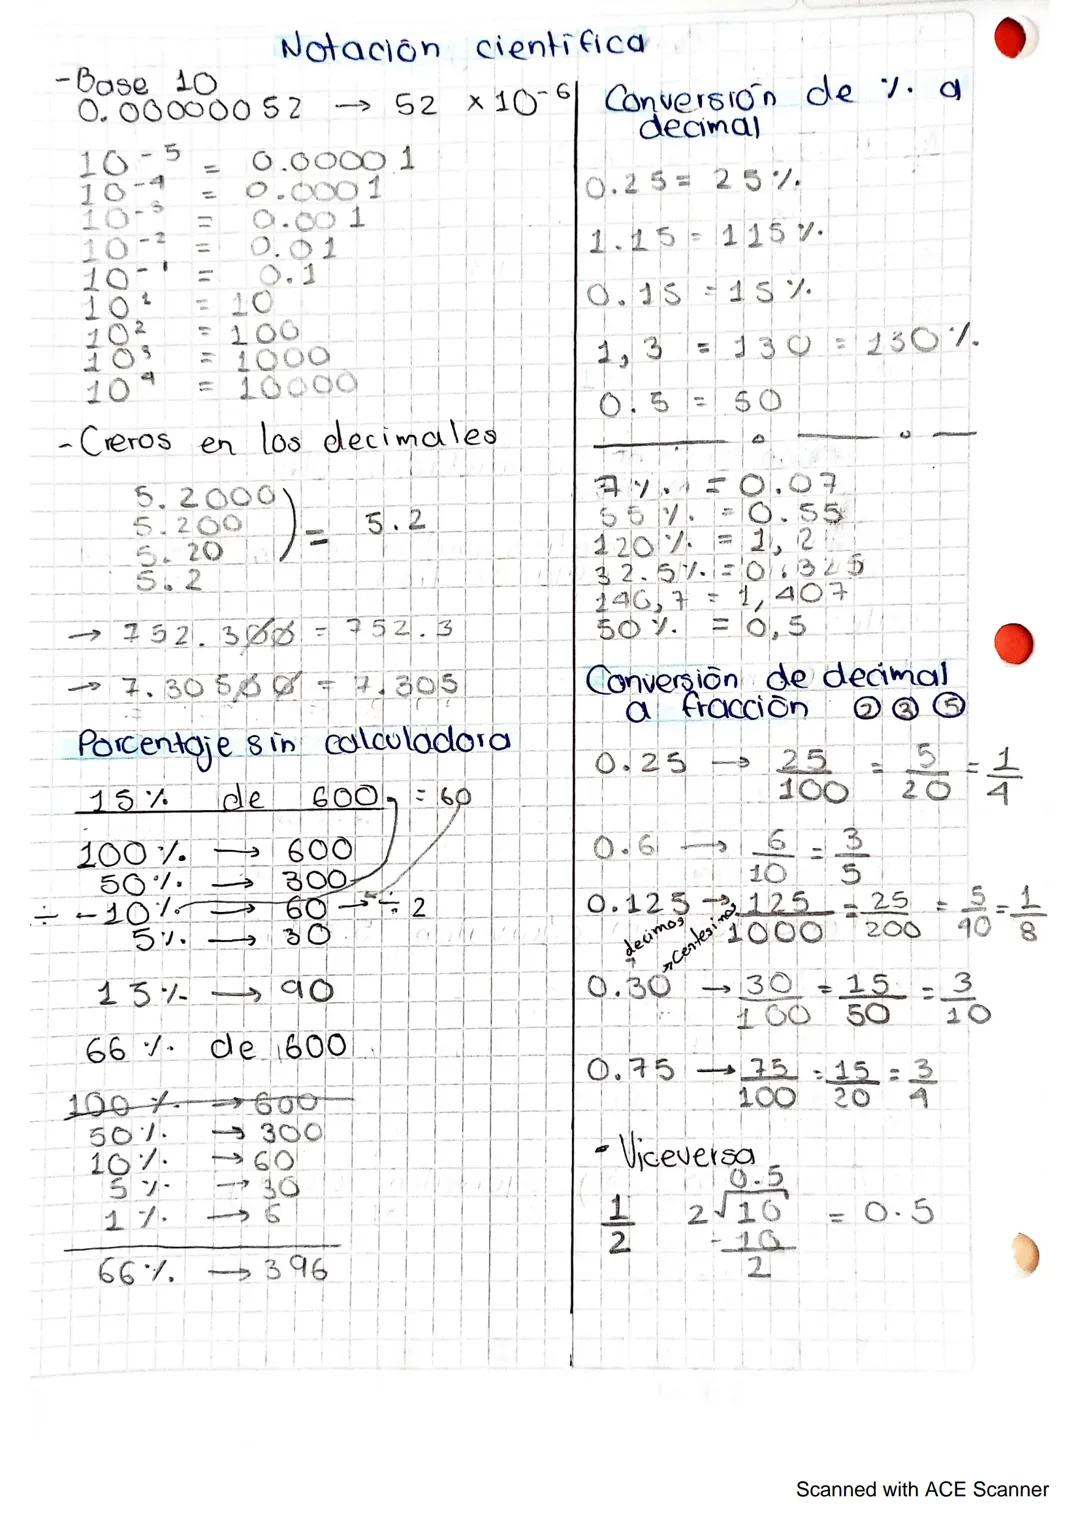 Notación científica
- Base 10
0.00000052 → 52 x10-6
10-5 = 0.00001
10-4 = 0.0001
10-3 = 0.001
10-2 = 0.01
10-1 = 0.1
10¹ = 10
10² = 100
10³ = 1000
10⁴ = 10000
- Creros en los decimales
5.2000
5.200
5.20
5.2
) = 5.2
→ 752.300 = 752.3
→ 7.30500 = 7.305
Porcentaje sin calculadora
15% de 600 = 60
100% → 600
50% → 300
÷ ←10% → 60 → ÷2
5% → 30
15% → 90
66% de 600
100% → 600
50% → 300
10% → 60
5% → 30
1% → 6
66% → 396
Conversión de % a
decimal
0.25 = 25%
1.15 = 115%
0.15 = 15%
1,3 = 130 = 130%
0.5 = 50
7% = 0.07
55% = 0.55
120% = 1,2
32.5% = 0.325
140,7 = 1,407
50% = 0,5
Conversión de decimal
a fracción ② ③ ⑤
0.25 → 25/100 = 5/20 = 1/4
0.6 → 6/10 = 3/5
0.125 → 125/1000 = 25/200 = 5/40 = 1/8
decimos
0.30 → 30/100 = 15/50 = 3/10
0.75 → 75/100 = 15/20 = 3/4
- Viceversa
0.5
1/2 2√10 = 0.5
- 10
2
Scanned with ACE Scanner